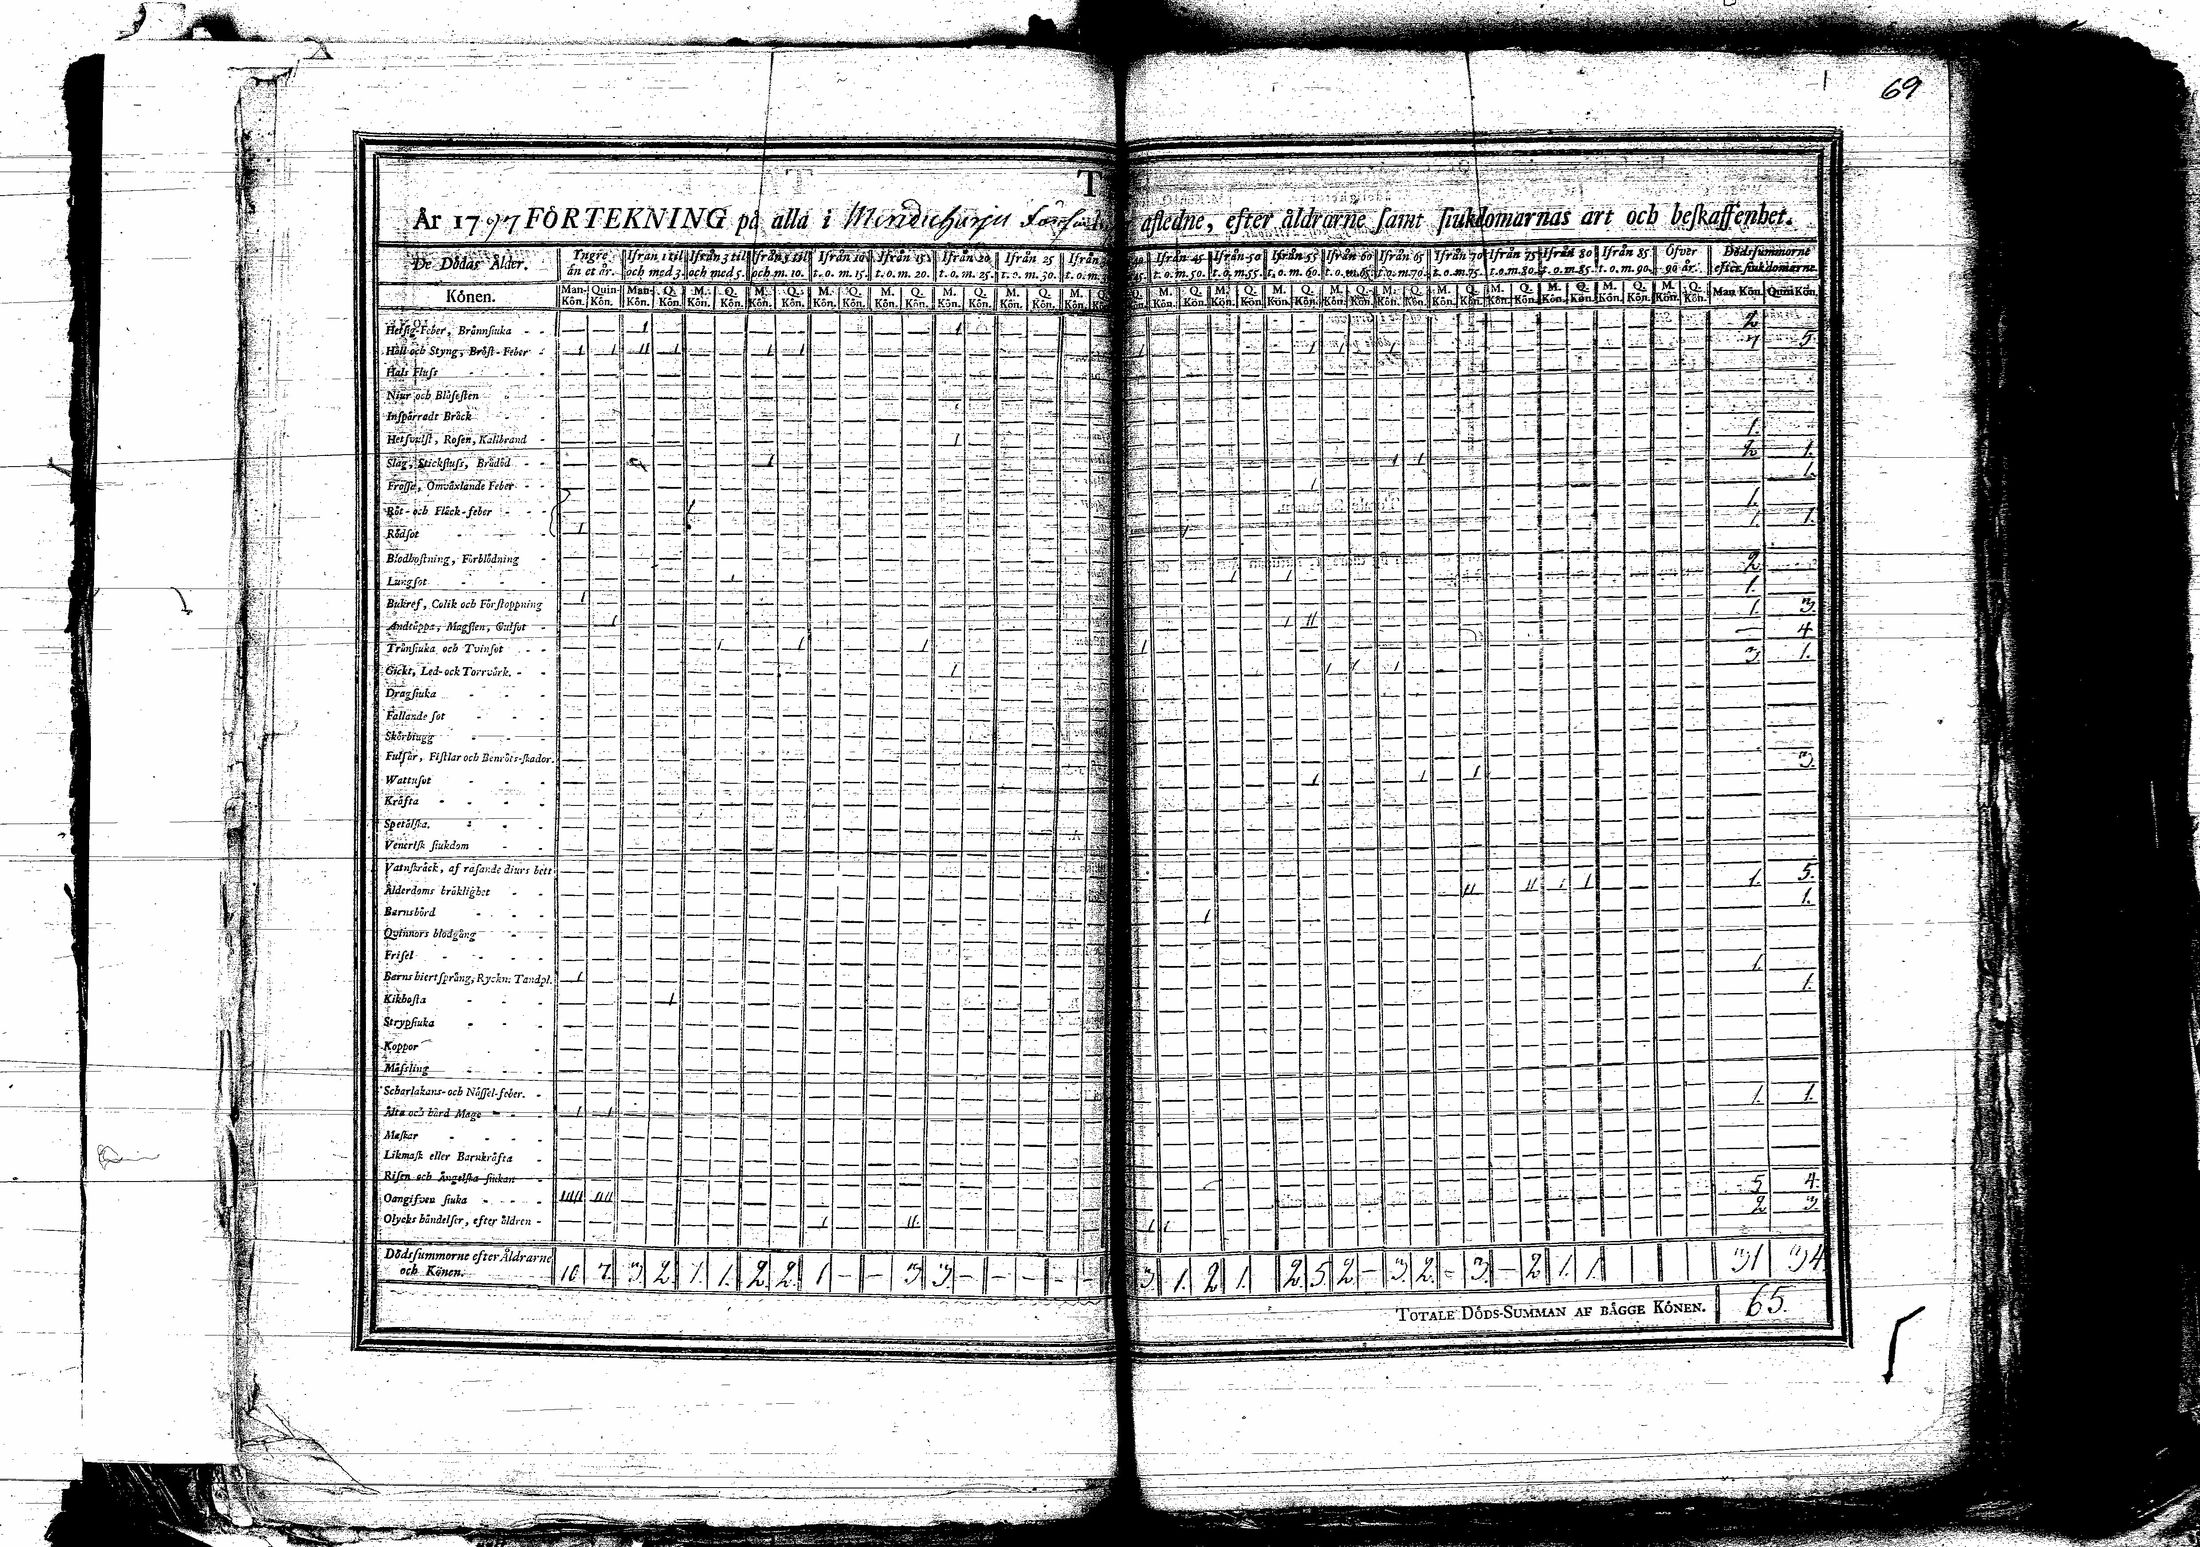 69
T
År 1797 FÖRTEKNING på alla i afledne, efter åldrarne samt siukdomarnas art och beskaffenhet.
De Dödas Ålder. Yngre än et år. Ifrån 1 til och med 3. Ifrån 3 til och med 5. Ifrån 5 til och m. 10. Ifrån 10 t. o. m. 15. Ifrån 15 t. o. m. 20. Ifrån 20 t. o. m. 25. Ifrån 25 t. o. m. 30. Ifrån 45 t. o. m. 50. Ifrån 50 t. o. m. 55. Ifrån 55 t. o. m. 60. Ifrån 60 t. o. m. 65. Ifrån 65 t. o. m. 70. Ifrån 70 t. o. m. 75. Ifrån 75 t. o. m. 80. Ifrån 80 t. o. m. 85. Ifrån 85 t. o. m. 90. Öfver 90 år. Dödssummorne efter siukdomarne
Könen. Man-Kön. Quin-Kön. Man-Kön. Q. Kön. M. Kön. Q. Kön. M. Kön. Q. Kön. M. Kön. Q. Kön. M. Kön. Q. Kön. M. Kön. Q. Kön. M. Kön. Q. Kön. Man Kön. Quin Kön.
Hetsig Feber, Brännsiuka 2
Håll och Styng, Bröst-Feber 7 5
Hals Fluss
Niur och Blåsesten
Inspärradt Bråck
Hetsvulst, Rosen, Kallbrand 1.
Slag, Stickfluss, Brådöd 2 1.
Frossa, Omväxlande Feber 1.
Röt- och Fläck-feber 1.
Rödsot 1 1.
Blodhostning, Förblödning
Lungsot 2
Bukref, Colik och Förstoppning 1.
Andtäppa, Magsien, Gulsot 1. 3.
Trånsiuka och Tvinsot 4
Gickt, Led- ock Torrvärk. 3. 1.
Dragsiuka
Fallande sot
Skörbiugg
Fulsår, Fistlar och Benröts-skador.
Wattusot 3.
Kräfta
Spetälska.
Venerisk siukdom
Vatuskräck, af rasande diurs bett
Ålderdoms bräklighet 1. 5.
Barnsbörd 1.
Qvinnors blodgång
Frisel
Barns hiertsprång, Ryckn: Tandpl. 1.
Kikhosta 1.
Strypsiuka
Koppor
Mässling
Scharlakans- och Nässel-feber.
Älta och hård Mage 1. 1.
Maskar
Likmask eller Barnkräfta
Risen och Ängelska siukan
Oangifven siuka 5 4.
Olycks händelser, efter åldren 2 3.
Dödssummorne efter Åldrarne och Könen. 10 7. 3. 2. 1. 1. 2. 2. 1 - - 3 3. - - - - - 3. 1. 2 1. 2. 5 2. - 3. 2. - 3. - 2 1. 1. 31 34.
TOTALE DÖDS-SUMMAN AF BÅGGE KÖNEN. 65.